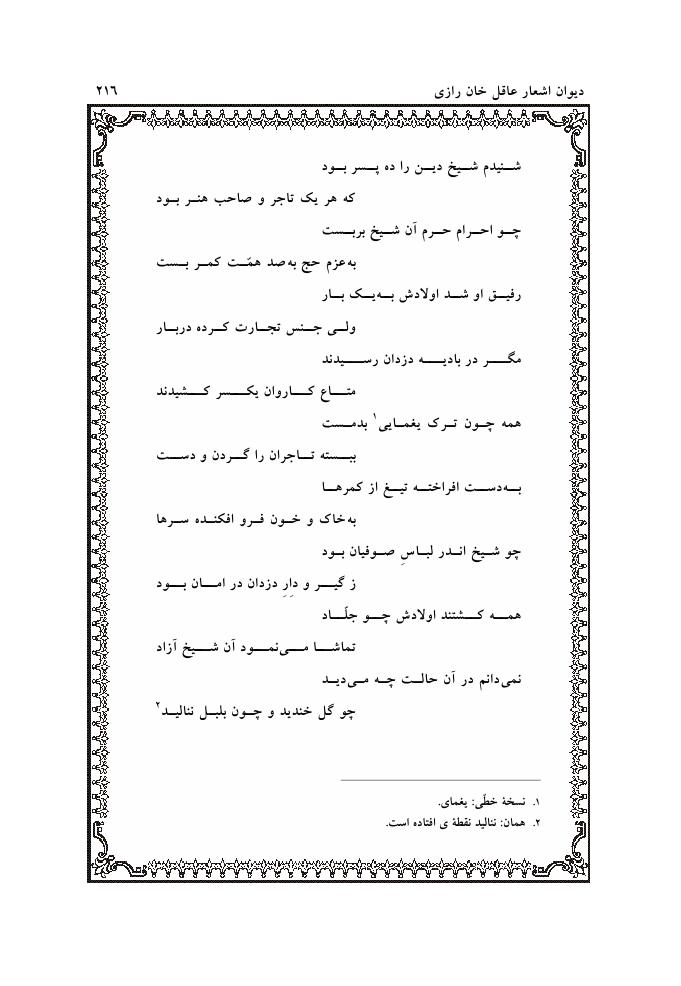 دیوان اشعار عاقل خان رازی ۲۱۶
شنیدم شیخ دین را ده پسر بود
که هر یک تاجر و صاحب هنر بود
چو احرام حرم آن شیخ بربست
به‌عزم حج به‌صد همّت کمر بست
رفیق او شد اولادش به‌یک بار
ولی جنس تجارت کرده دربار
مگر در بادیه دزدان رسیدند
متاع کاروان یکسر کشیدند
همه چون ترک یغمایی۱ بدمست
ببسته تاجران را گردن و دست
به‌دست افراخته تیغ از کمرها
به‌خاک و خون فرو افکنده سرها
چو شیخ اندر لباسِ صوفیان بود
ز گیر و دارِ دزدان در امان بود
همه کشتند اولادش چو جلّاد
تماشا می‌نمود آن شیخ آزاد
نمی‌دانم در آن حالت چه می‌دید
چو گل خندید و چون بلبل ننالید۲
۱. نسخهٔ خطّی: یغمای.
۲. همان: ننالید نقطهٔ ی افتاده است.